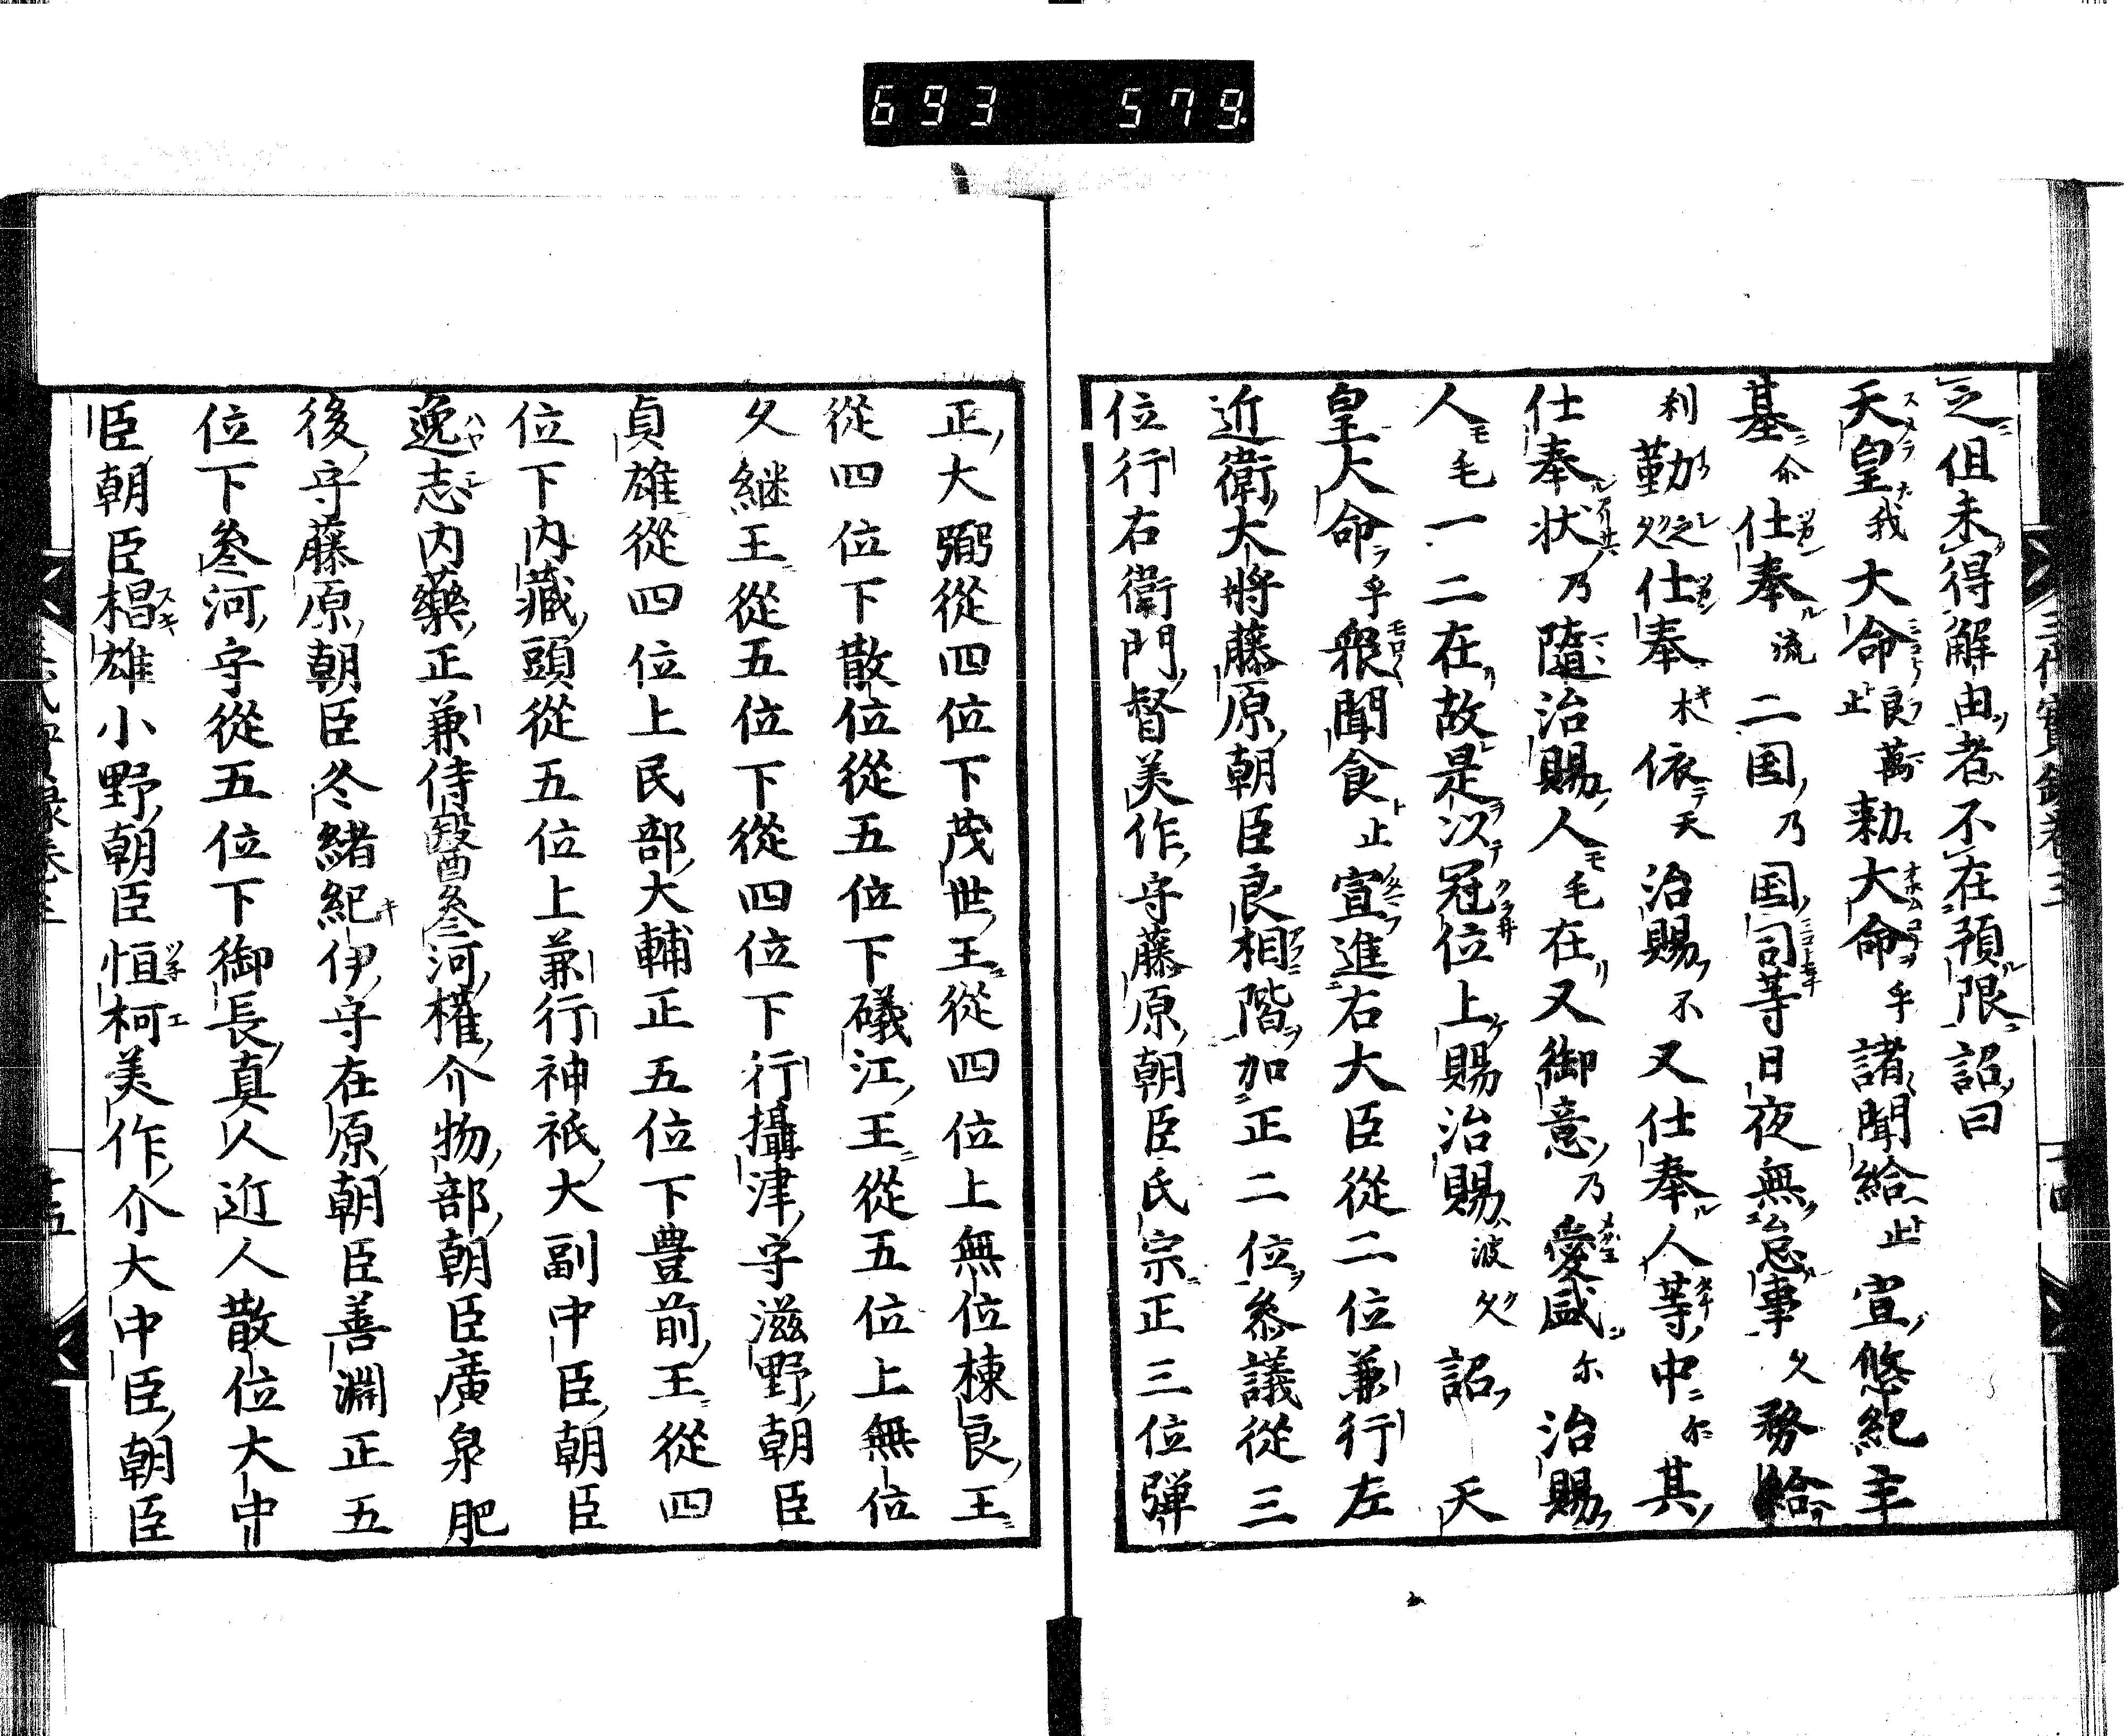 693 579
之但未得解由者不在預限詔曰
天皇我大命良止萬勅大命乎諸聞給止宣悠紀主
基尒仕奉流二国乃国司等日夜無怠事久務給
利勤之久仕奉木依天治賜不又仕奉人等中尓其
仕奉状乃隨治賜人毛在又御意乃愛盛尓治賜
人毛一二在故是以冠位上賜治賜波久詔天
皇大命乎衆聞食止宣進右大臣從二位兼行左
近衛大將藤原朝臣良相階加正二位叅議從三
位行右衛門督美作守藤原朝臣氏宗正三位彈
三代實錄卷三
十四
正大弼從四位下茂世王從四位上無位棟良王
從四位下散位從五位下礒江王從五位上無位
久継王從五位下從四位下行攝津守滋野朝臣
貞雄從四位上民部大輔正五位下豊前王從四
位下内藏頭從五位上兼行神祇大副中臣朝臣
逸志内藥正兼侍醫叅河權介物部朝臣廣泉肥
後守藤原朝臣冬緒紀伊守在原朝臣善淵正五
位下叅河守從五位下御長真人近人散位大中
臣朝臣椙雄小野朝臣恒柯美作介大中臣朝臣
十五